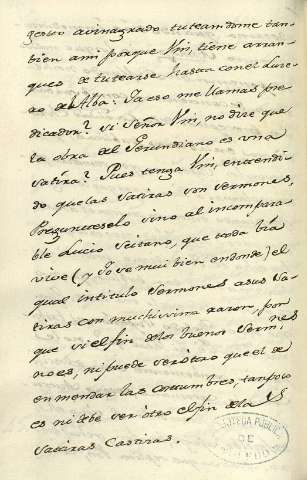 gesto avinagrado tuteandome tan-
bien ami porque Vm, tiene arran-
ques de tutearse hasta con el Luze-
ro del Alba: Ya eso me llamais pre-
dicador? si Señor Vm, no dize que
la obra del Gerundiano es una
satira? Pues tenga Vm, entendi-
do que las satiras son sermones,
Pregunteselo vino al incompara-
ble Lucio Seitano, que toda bia
vive (y Yo se mui bien en donde) el
qual intitulo sermones a sus sa-
tiras con muchisima razon, por
que si el fin de los buenos sermo
nes
no es, ni puede ser otro que el de
enmendar las costumbres, tanpoco
es ni debe ser otro el fin de las
satiras Castizas.
BIBLIOTECA PUBLICA
DE